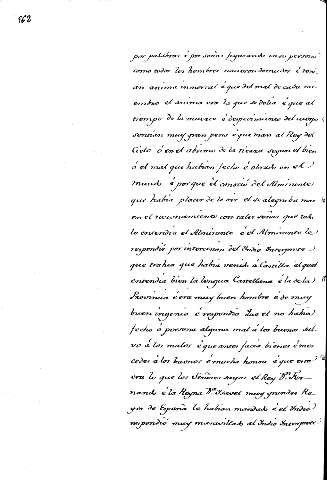 162
por palabras é por señas figurando en su persona
como todos los hombres nascieron desnudos é tenian
an anima inmortal é que del mal de cada mi-
embro el anima era la que se dolia é que al
tiempo de la muerte é despedimiento del cuerpo
sentian muy gran pena é que ivan al Rey del
Cielo ó en el abismo de la tierra segun el bien
ó el mal que habian fecho é obrado en el
mundo é porque él conoció del Almirante
que habia placer de lo oir él se alegraba mas
en el razonamiento con tales señas que todo
lo entendia el Almirante é el Almirante le
respondia por intercesion del Indio Interprete
que trahia que habia venido á Castilla el qual
entendia bien la lengua Castellana é la de la
Provincia é era muy buen hombre é de muy
buen ingenio é respondió que él no habia
fecho á persona alguna mal á los buenos sal-
vo á los malos é que antes facia bienes é mer-
cedes á los buenos é mucha honra é que esto
era lo que los Señores suyos el Rey Dn. Fer-
nando é la Reyna Dª. Isavel muy grandes Re-
yes de España le habian mandado é el Indio
respondió muy maravillado al Indio Interprete